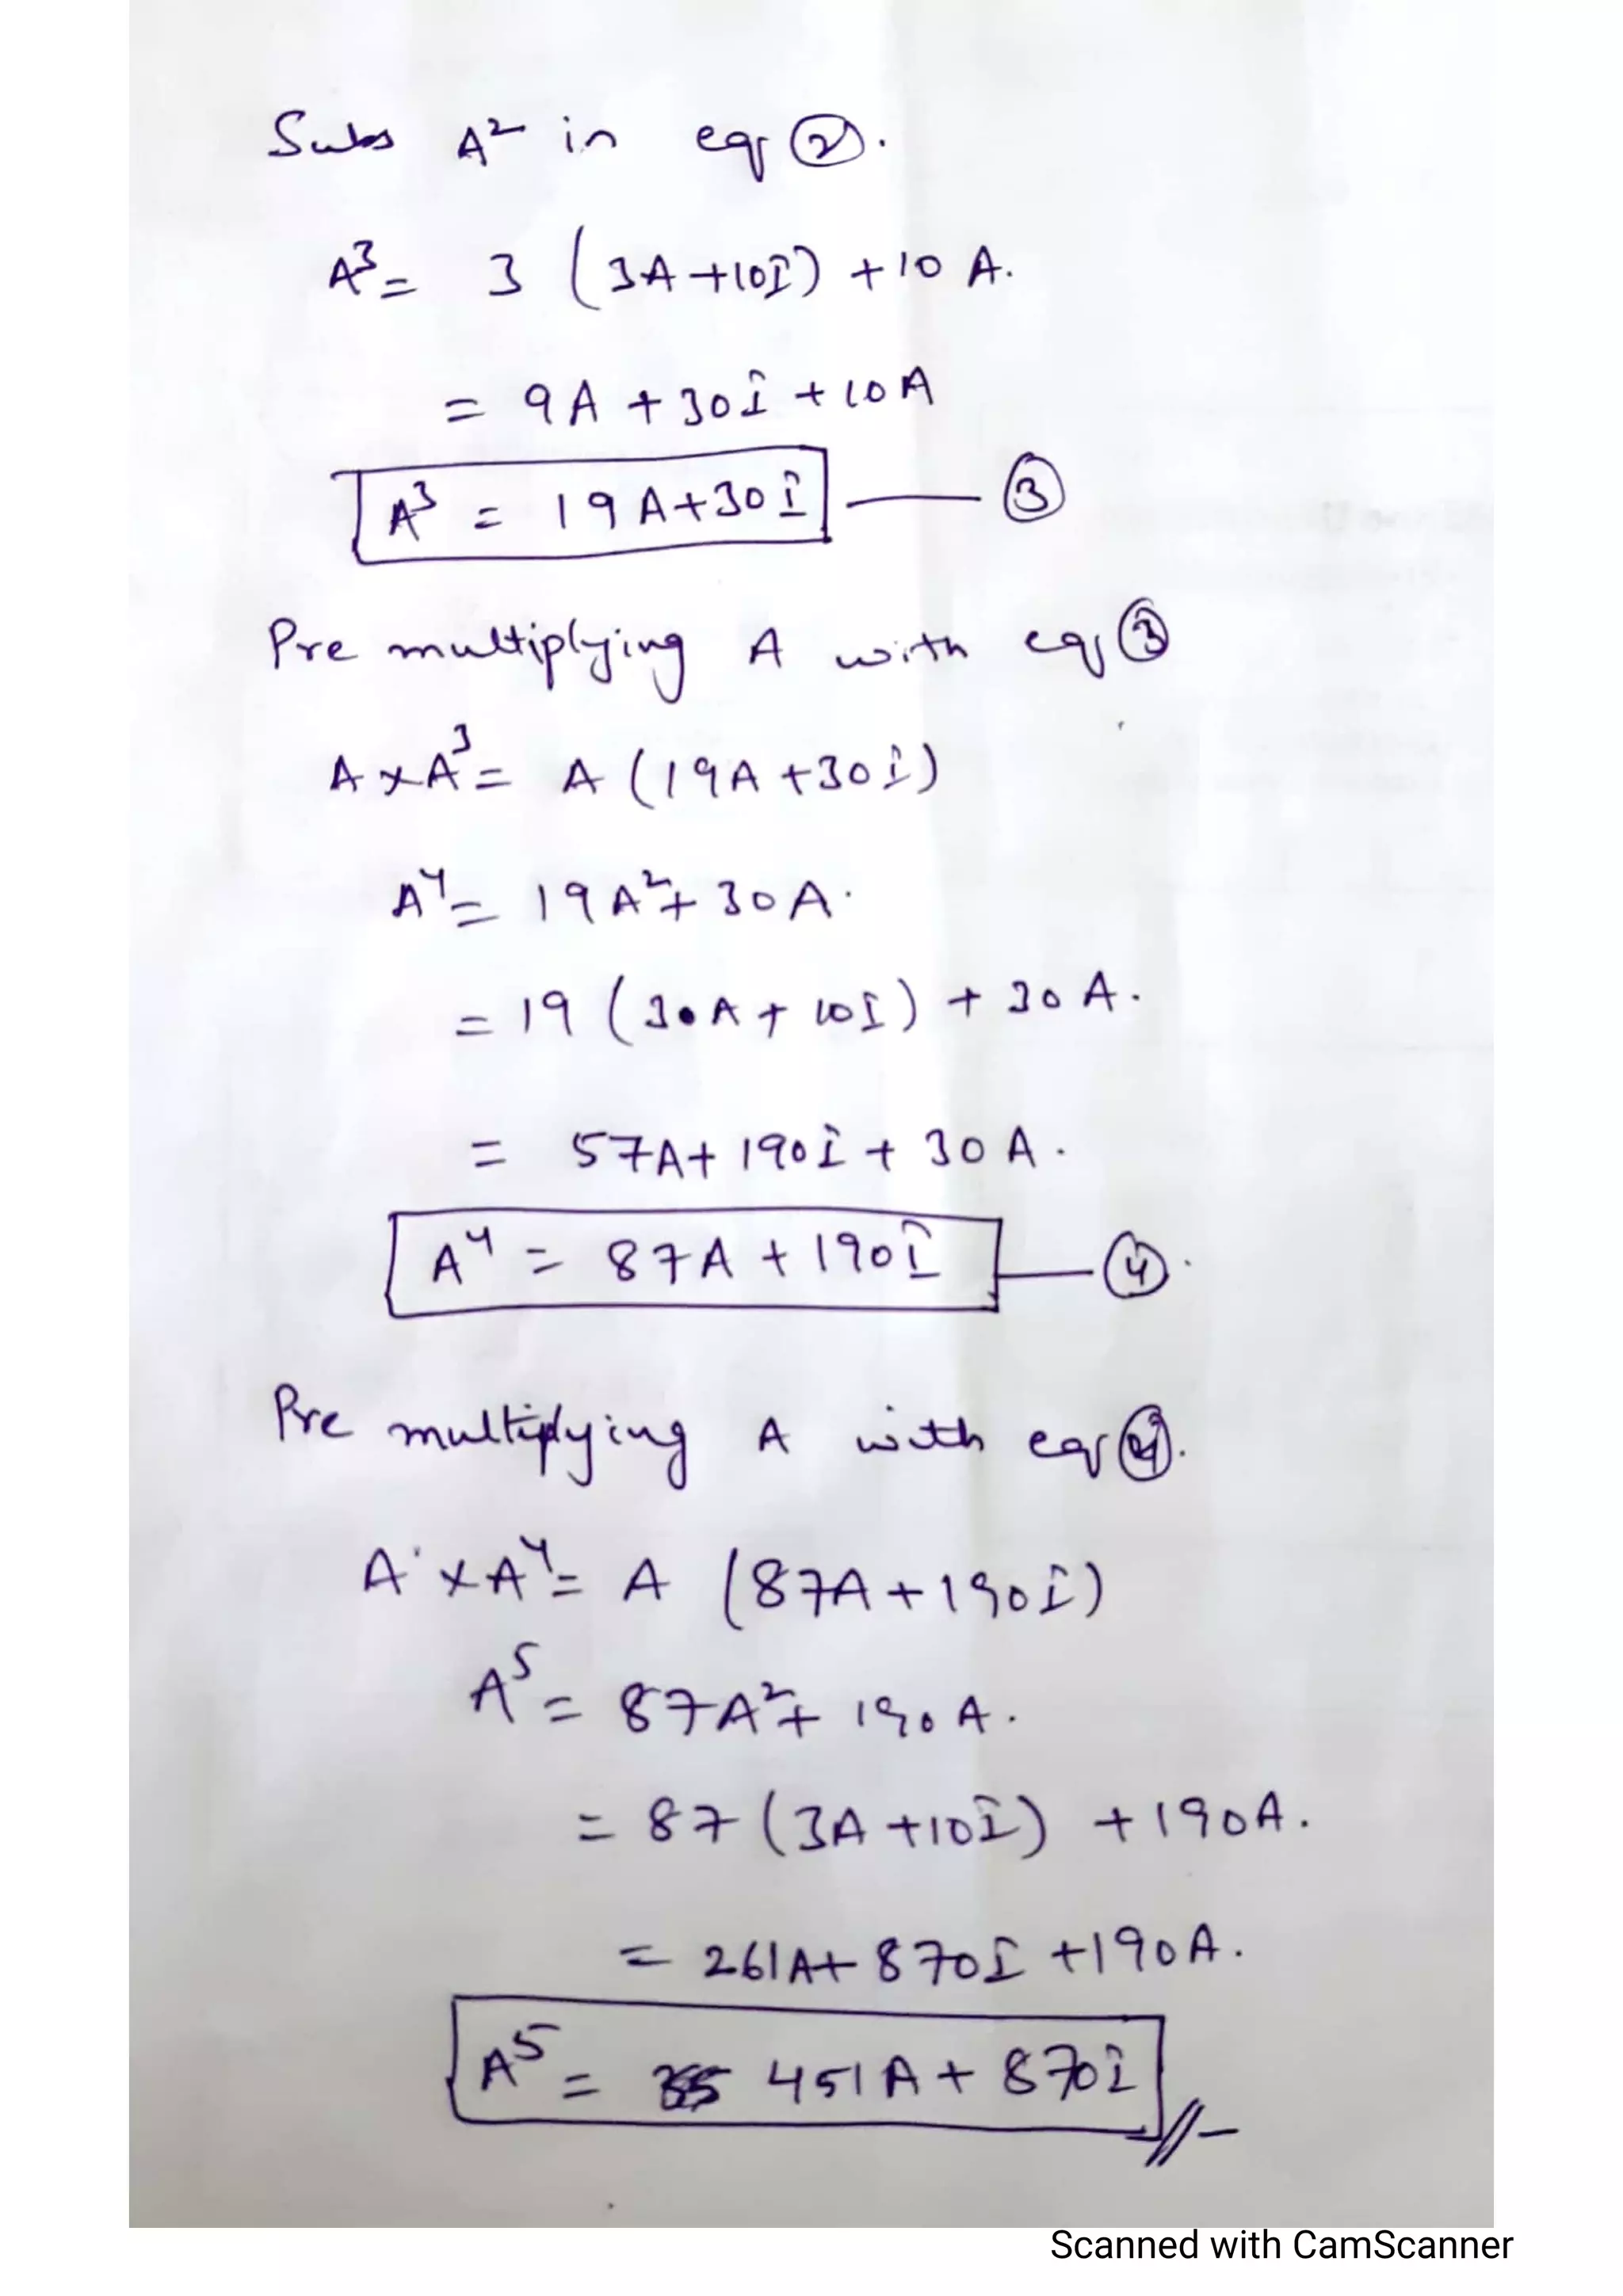 Subs A² in eq ②.
A³ = 3 (3A+10I) +10 A.
= 9A + 30I + 10A
A³ = 19A+30I — ③
Pre multiplying A with eq ③
A×A³ = A (19A+30I)
A⁴ = 19A²+ 30A.
= 19 (3A + 10I) + 30A.
= 57A+ 190I + 30A.
A⁴ = 87A + 190I — ④.
Pre multiplying A with eq ④.
A × A⁴ = A (87A+190I)
A⁵ = 87A²+ 190A.
= 87 (3A +10I) +190A.
= 261A+ 870I +190A.
A⁵ = 451A + 870I
Scanned with CamScanner